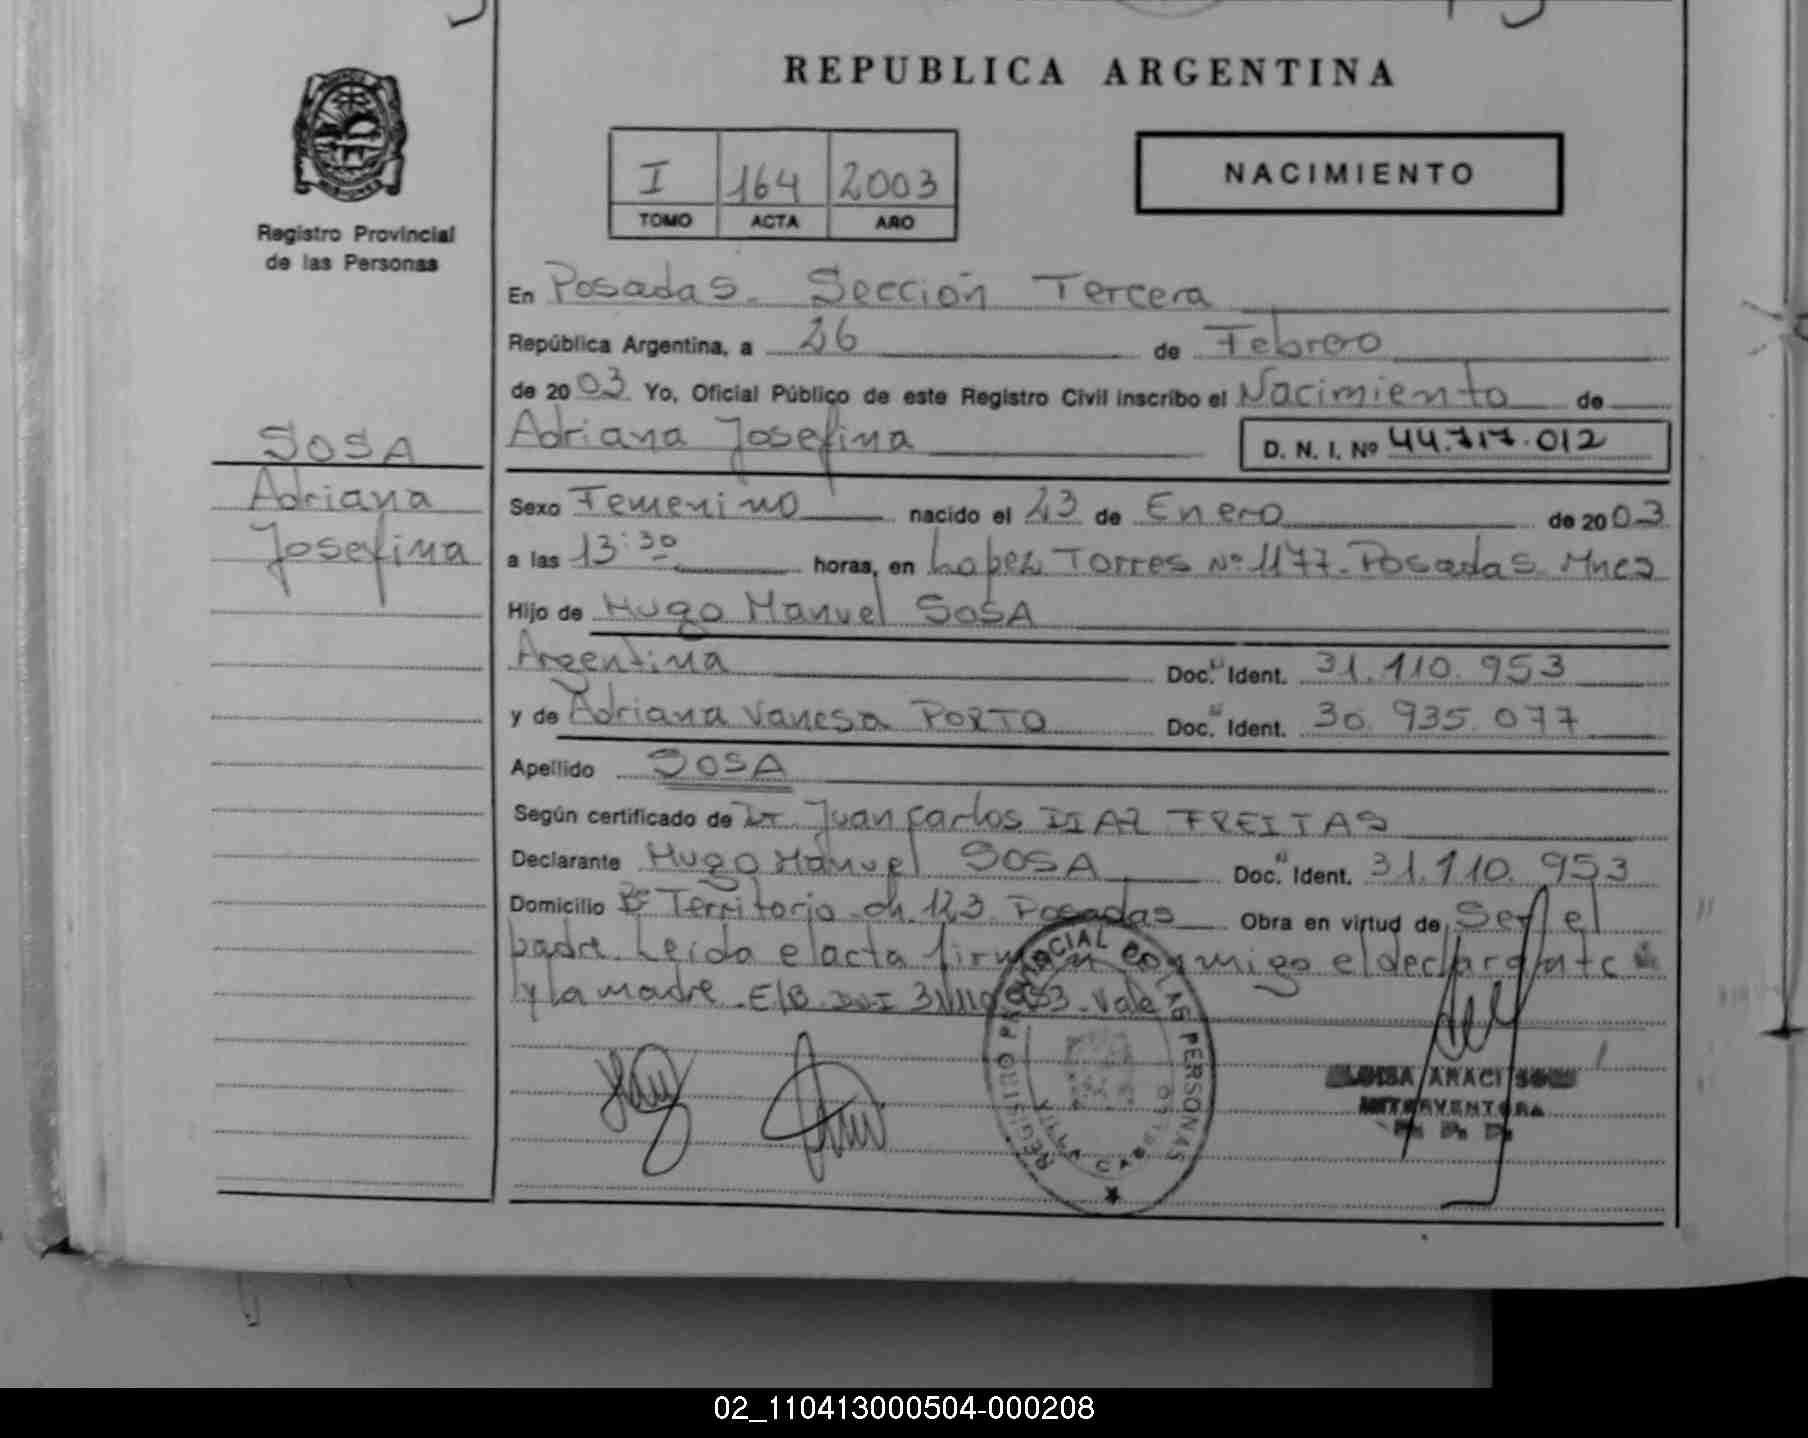 REPUBLICA ARGENTINA
I 164 2003
TOMO ACTA AÑO
NACIMIENTO
Registro Provincial
de las Personas
SOSA
Adriana
Josefina
En Posadas. Sección Tercera
República Argentina, a 26 de Febrero
de 2003 Yo, Oficial Público de este Registro Civil inscribo el Nacimiento de
Adriana Josefina D. N. I. Nº 44.717.012
Sexo Femenino nacido el 23 de Enero de 2003
a las 13:30 horas, en Lopez Torres Nº 1177. Posadas Mnes
Hijo de Hugo Manuel SOSA
Argentina Doc. Ident. 31.110.953
y de Adriana Vanesa PORTO Doc. Ident. 30.935.077
Apellido SOSA
Según certificado de Dr. Juan Carlos DIAZ FREITAS
Declarante Hugo Manuel SOSA Doc. Ident. 31.110.953
Domicilio Bº Territorio ch. 123 Posadas Obra en virtud de Ser el
padre. Leida el acta firman conmigo el declarante
y la madre. E/B. DNI 31.110.953. Vale
REGISTRO PROVINCIAL DE LAS PERSONAS
VILLA CAB
ARACI
INTERVENTORA
02_110413000504-000208